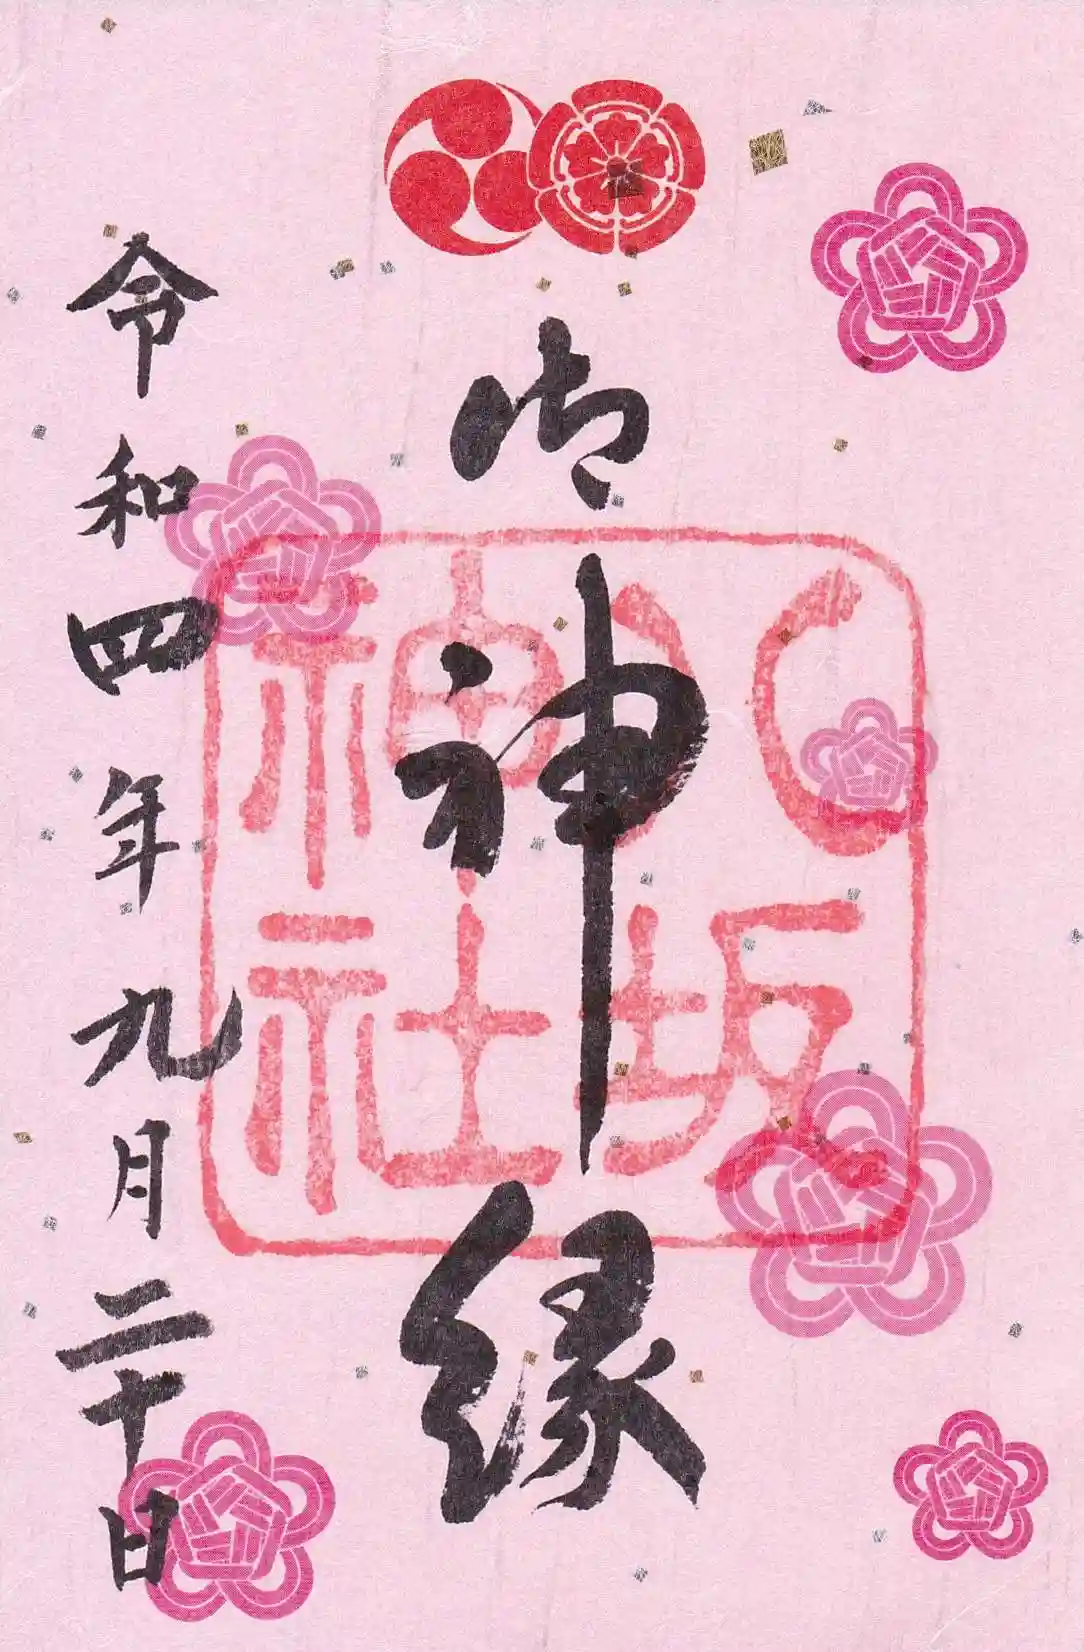 御神縁
八坂
神社
令和四年九月二十日